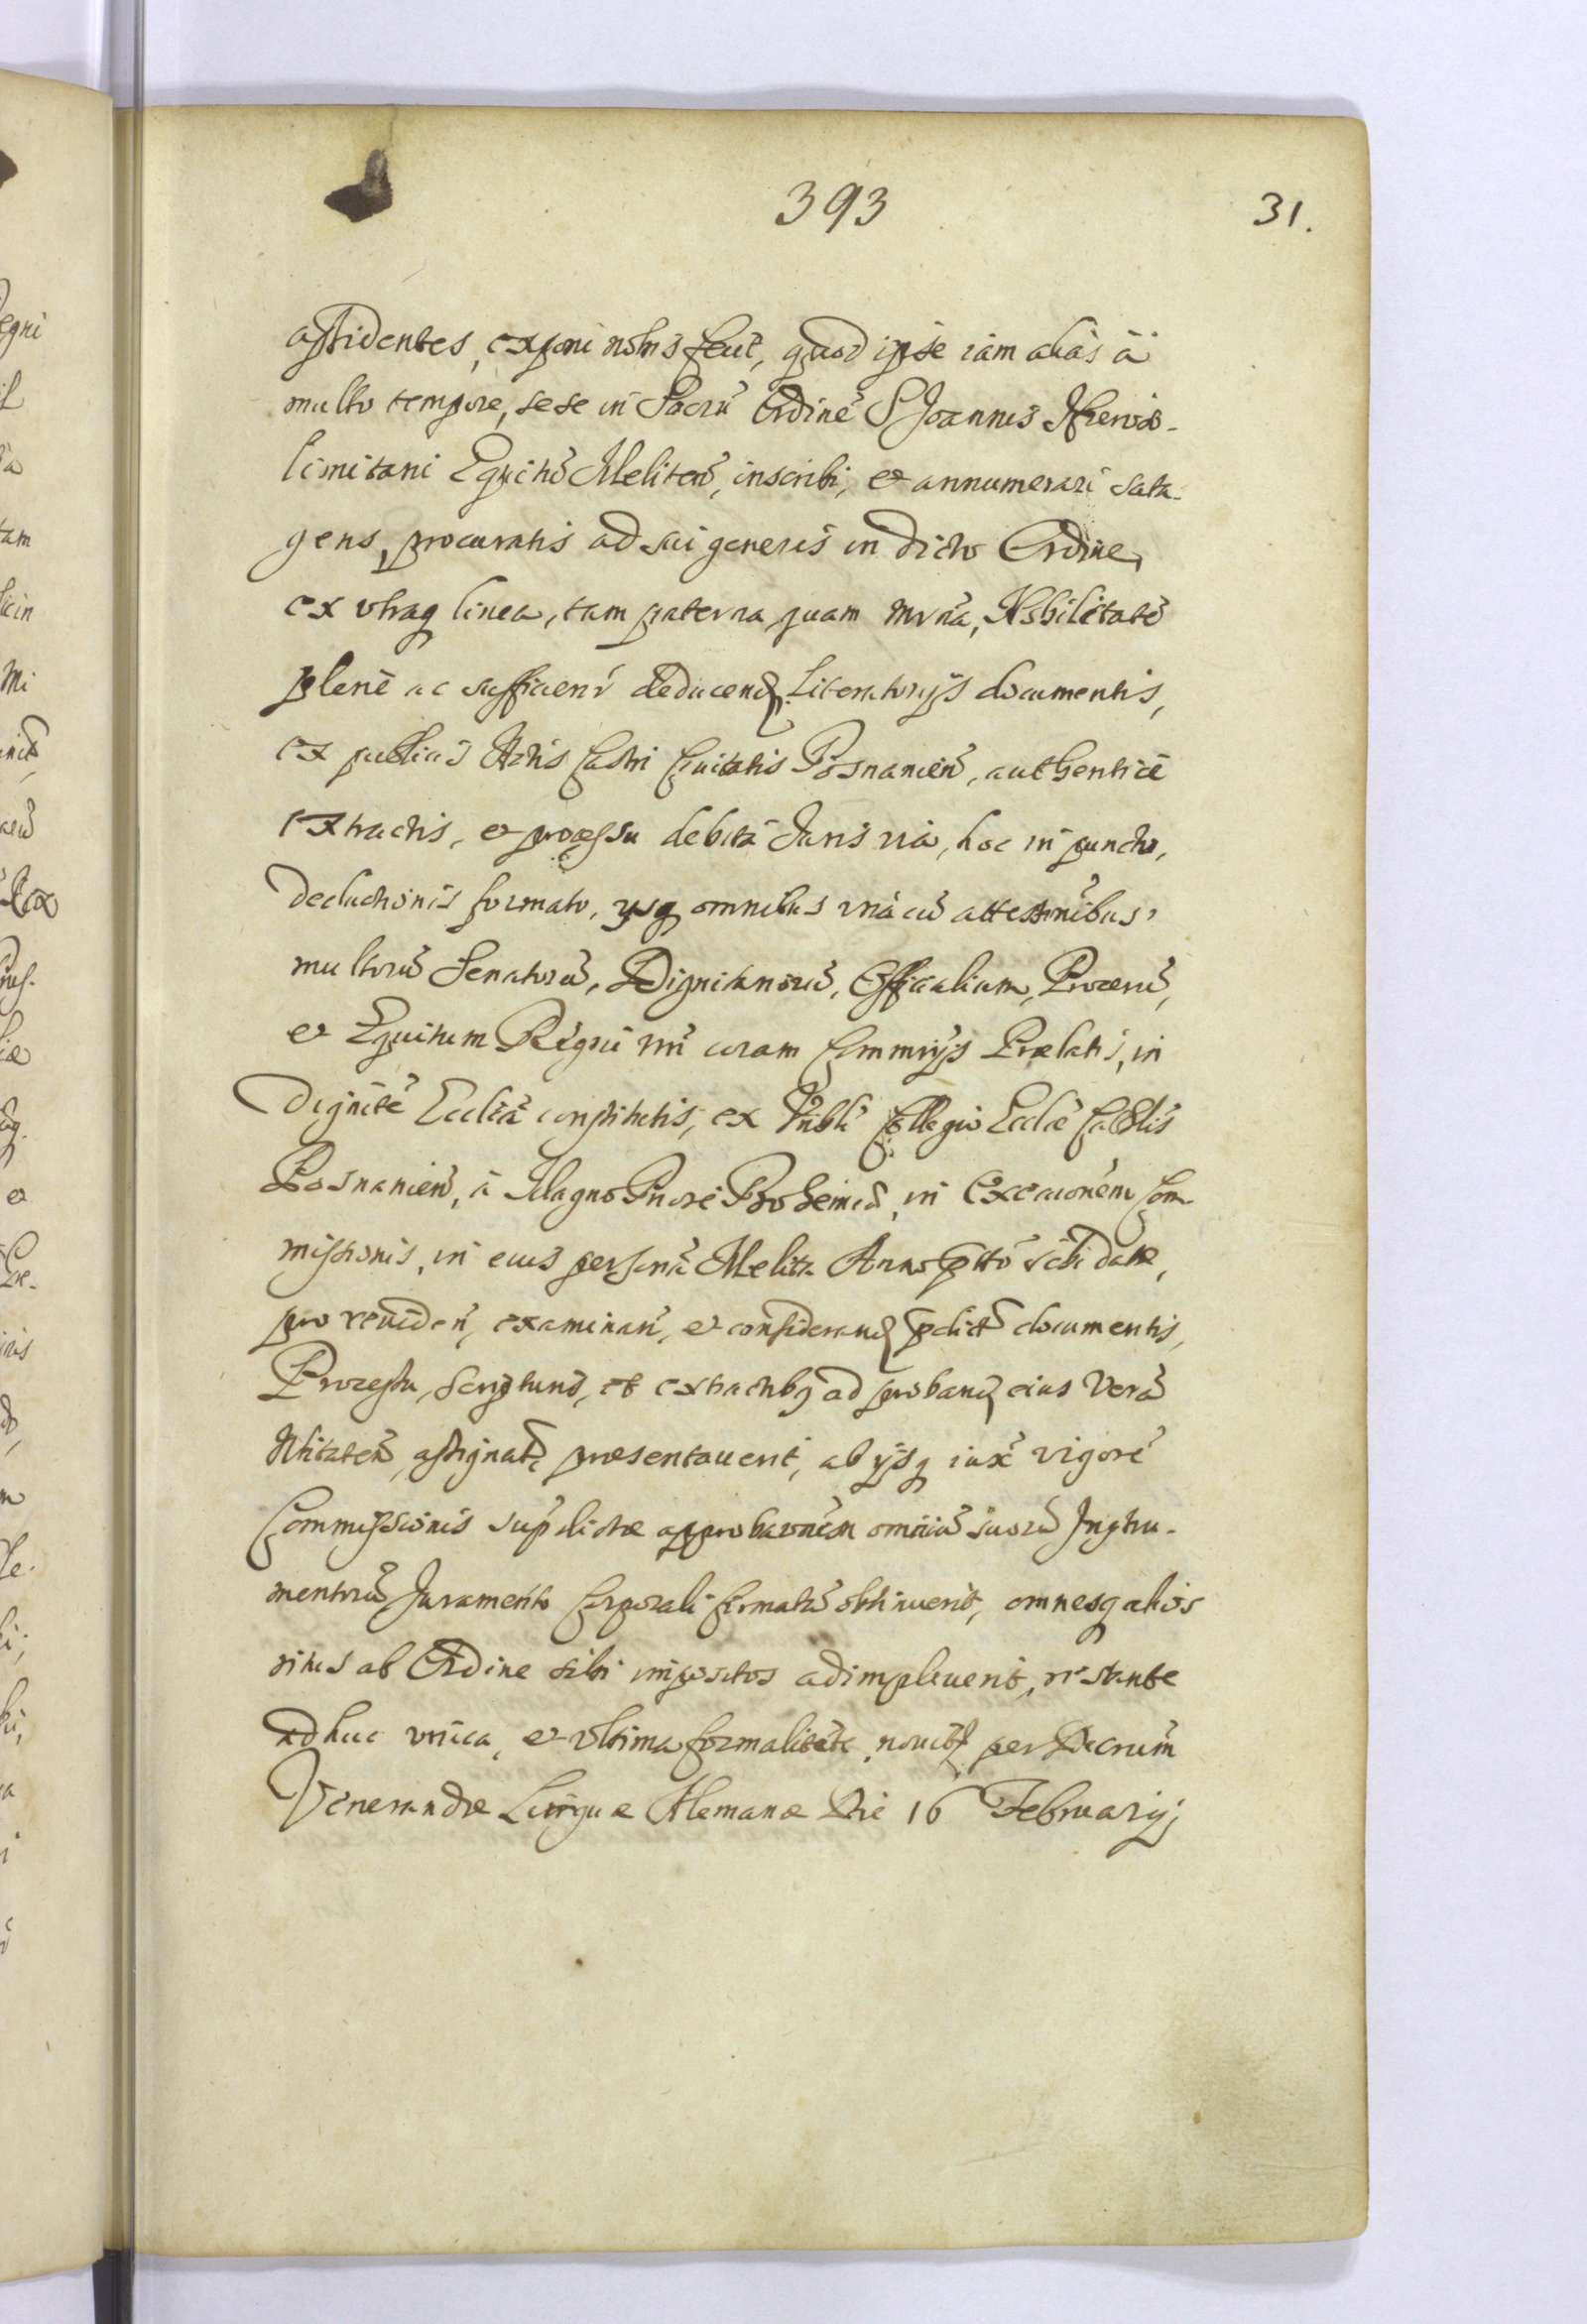 393
31.
assidentes, exponi nobis fecit, quod ipse iam aliàs à
multo tempore, sese in Sacrũ Ordinẽ S Joannis Hieroso-
limitani Equitũ Meliteñ, inscribi, et annumerari sata-
gens, procuratis ad sui generis in dicto Ordine,
ex utraq linea, tam paterna quam mrña, Nobilitatẽ
plenè ac sufficienr deducend Literatorijs documentis,
ex publicis Actis Castri Civitatis Posnanieñ, authenticè
extractis, et processu debitâ Juris via, hoc in puncto,
deductionis formato, ysq omnibus unà cũ attestñibus
multorũ Senatorũ, Dignitariorũ, Officialium, Procerũ,
et Equitum Regni nri coram Commrijs Prælatis, in
Dignitẽ Ecclĩa constitutis, ex Vnbli Collegio Ecclæ Cathlis
Posnanieñ, à Magno Priore Bohemiæ, in Execuonem Com-
missionis, in eius personã Melitæ Anno sibi datæ,
pro revideñ, examinañ, et considerand pdict documentis,
Processu, Scripturis, et extractibq ad proband eius Verã
Nlitatem, assignatç præsentaverit, ab ijsq iux̃ vigorẽ
Commissionis supdictæ approbaõnem omniũ suorũ Instru-
mentorũ Juramento Corporali firmatũ obtinuerit, omnesq alios
ritus ab Ordine sibi impositos adimpleverit, restante
adhuc unica, et ultima formalitate, per Decrũm
Venerandæ Linguæ Alemanæ Die 16 Februarij